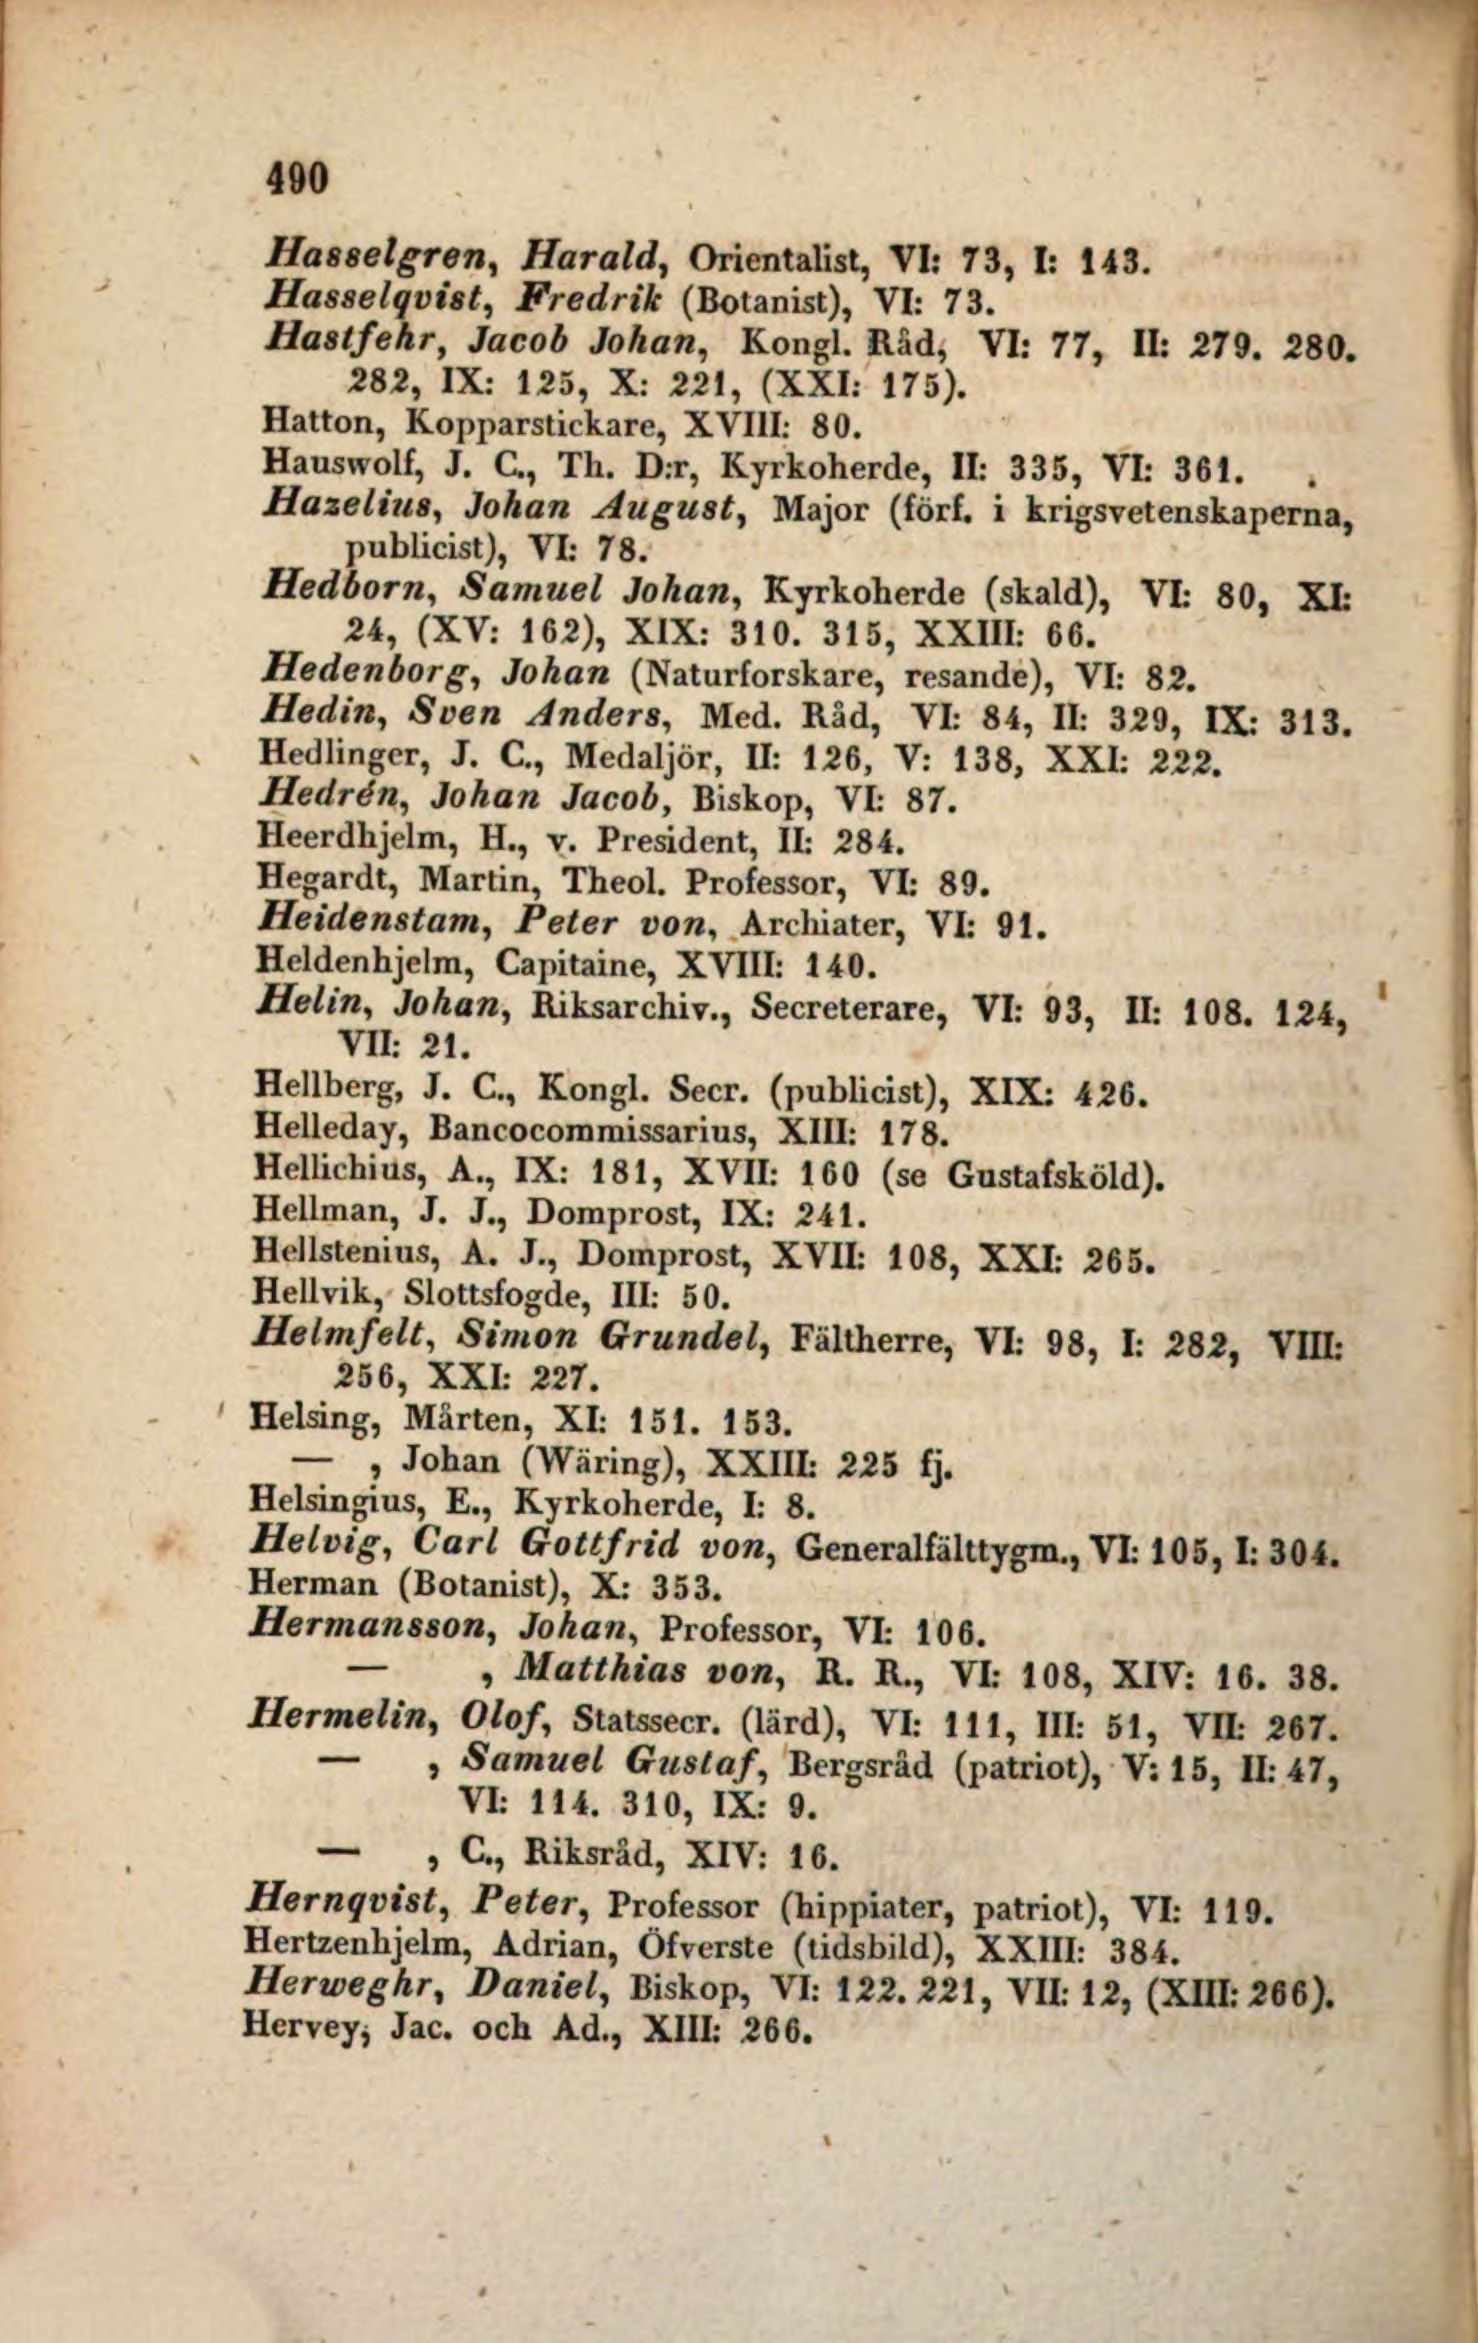 490
Hasselgren, Harald, Orientalist, VI: 73, I: 143.
Hasselqvist, Fredrik (Botanist), VI: 73.
Hastfehr, Jacob Johan, Kongl. Råd, VI: 77, II: 279. 280.
282, IX: 125, X: 221, (XXI: 175).
Hatton, Kopparstickare, XVIII: 80.
Hauswolf, J. C., Th. D:r, Kyrkoherde, II: 335, VI: 361.
Hazelius, Johan August, Major (förf. i krigsvetenskaperna,
publicist), VI: 78.
Hedborn, Samuel Johan, Kyrkoherde (skald), VI: 80, XI:
24, (XV: 162), XIX: 310. 315, XXIII: 66.
Hedenborg, Johan (Naturforskare, resande), VI: 82.
Hedin, Sven Anders, Med. Råd, VI: 84, II: 329, IX: 313.
Hedlinger, J. C., Medaljör, II: 126, V: 138, XXI: 222.
Hedrén, Johan Jacob, Biskop, VI: 87.
Heerdhjelm, H., v. President, II: 284.
Hegardt, Martin, Theol. Professor, VI: 89.
Heidenstam, Peter von, Archiater, VI: 91.
Heldenhjelm, Capitaine, XVIII: 140.
Helin, Johan, Riksarchiv., Secreterare, VI: 93, II: 108. 124,
VII: 21.
Hellberg, J. C., Kongl. Secr. (publicist), XIX: 426.
Helleday, Bancocommissarius, XIII: 178.
Hellichius, A., IX: 181, XVII: 160 (se Gustafsköld).
Hellman, J. J., Domprost, IX: 241.
Hellstenius, A. J., Domprost, XVII: 108, XXI: 265.
Hellvik, Slottsfogde, III: 50.
Helmfelt, Simon Grundel, Fältherre, VI: 98, I: 282, VIII:
256, XXI: 227.
Helsing, Mårten, XI: 151. 153.
— , Johan (Wäring), XXIII: 225 fj.
Helsingius, E., Kyrkoherde, I: 8.
Helvig, Carl Gottfrid von, Generalfälttygm., VI: 105, I: 304.
Herman (Botanist), X: 353.
Hermansson, Johan, Professor, VI: 106.
— , Matthias von, R. R., VI: 108, XIV: 16. 38.
Hermelin, Olof, Statssecr. (lärd), VI: 111, III: 51, VII: 267.
— , Samuel Gustaf, Bergsråd (patriot), V: 15, II: 47,
VI: 114. 310, IX: 9.
— , C., Riksråd, XIV: 16.
Hernqvist, Peter, Professor (hippiater, patriot), VI: 119.
Hertzenhjelm, Adrian, Öfverste (tidsbild), XXIII: 384.
Herweghr, Daniel, Biskop, VI: 122. 221, VII: 12, (XIII: 266).
Hervey, Jac. och Ad., XIII: 266.